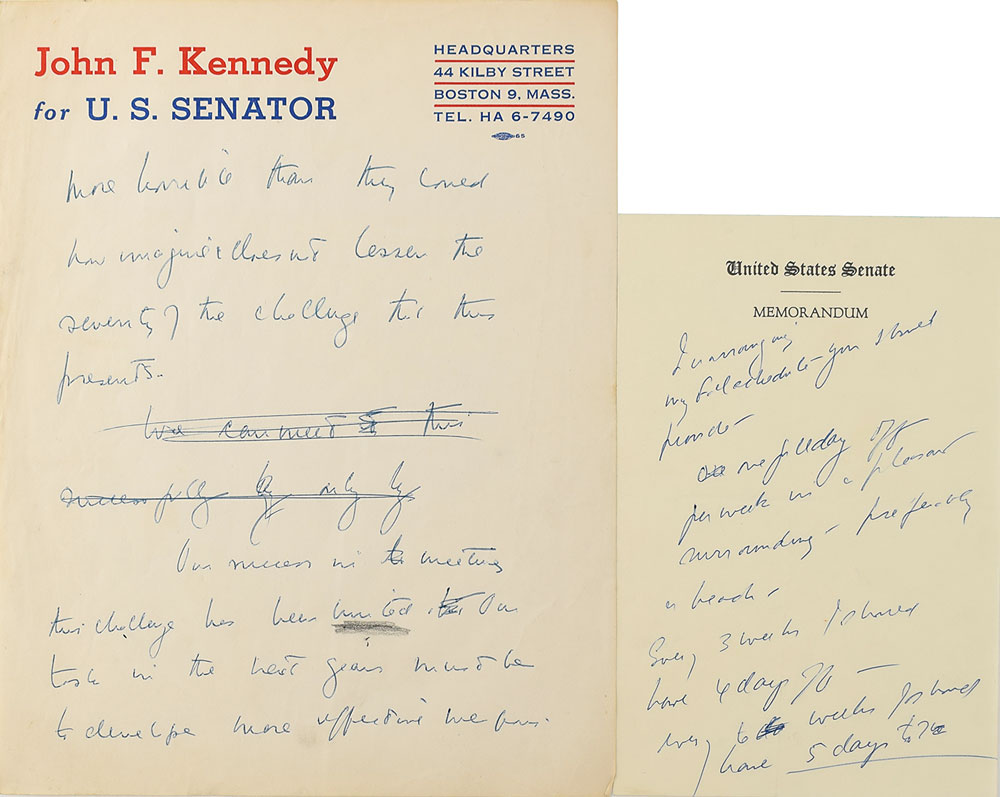 John F. Kennedy
for U. S. SENATOR
HEADQUARTERS
44 KILBY STREET
BOSTON 9, MASS.
TEL. HA 6-7490
65
more horrible than they could
now imagine doesn't lessen the
severity of the challenge this
presents.
We can meet this
successfully by only by
Our success in meeting
this challenge has been limited Our
task in the next years must be
to develope more effective weapons.
United States Senate
MEMORANDUM
In arranging
my schedule you should
provide
one full day off
per week in a pleasant
surrounding - preferably
a beach -
Every 3 weeks I should
have 4 days off —
every weeks I should
have 5 days to